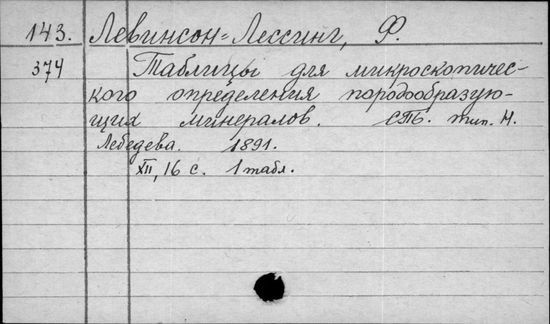 143. Левинсон=Лессинг, Ф.
374 Таблицы для микроскопичес-
кого определения породообразую-
щих минералов. СПб. тип. Н.
Лебедева. 1891.
XII, 16 с. 1 табл.